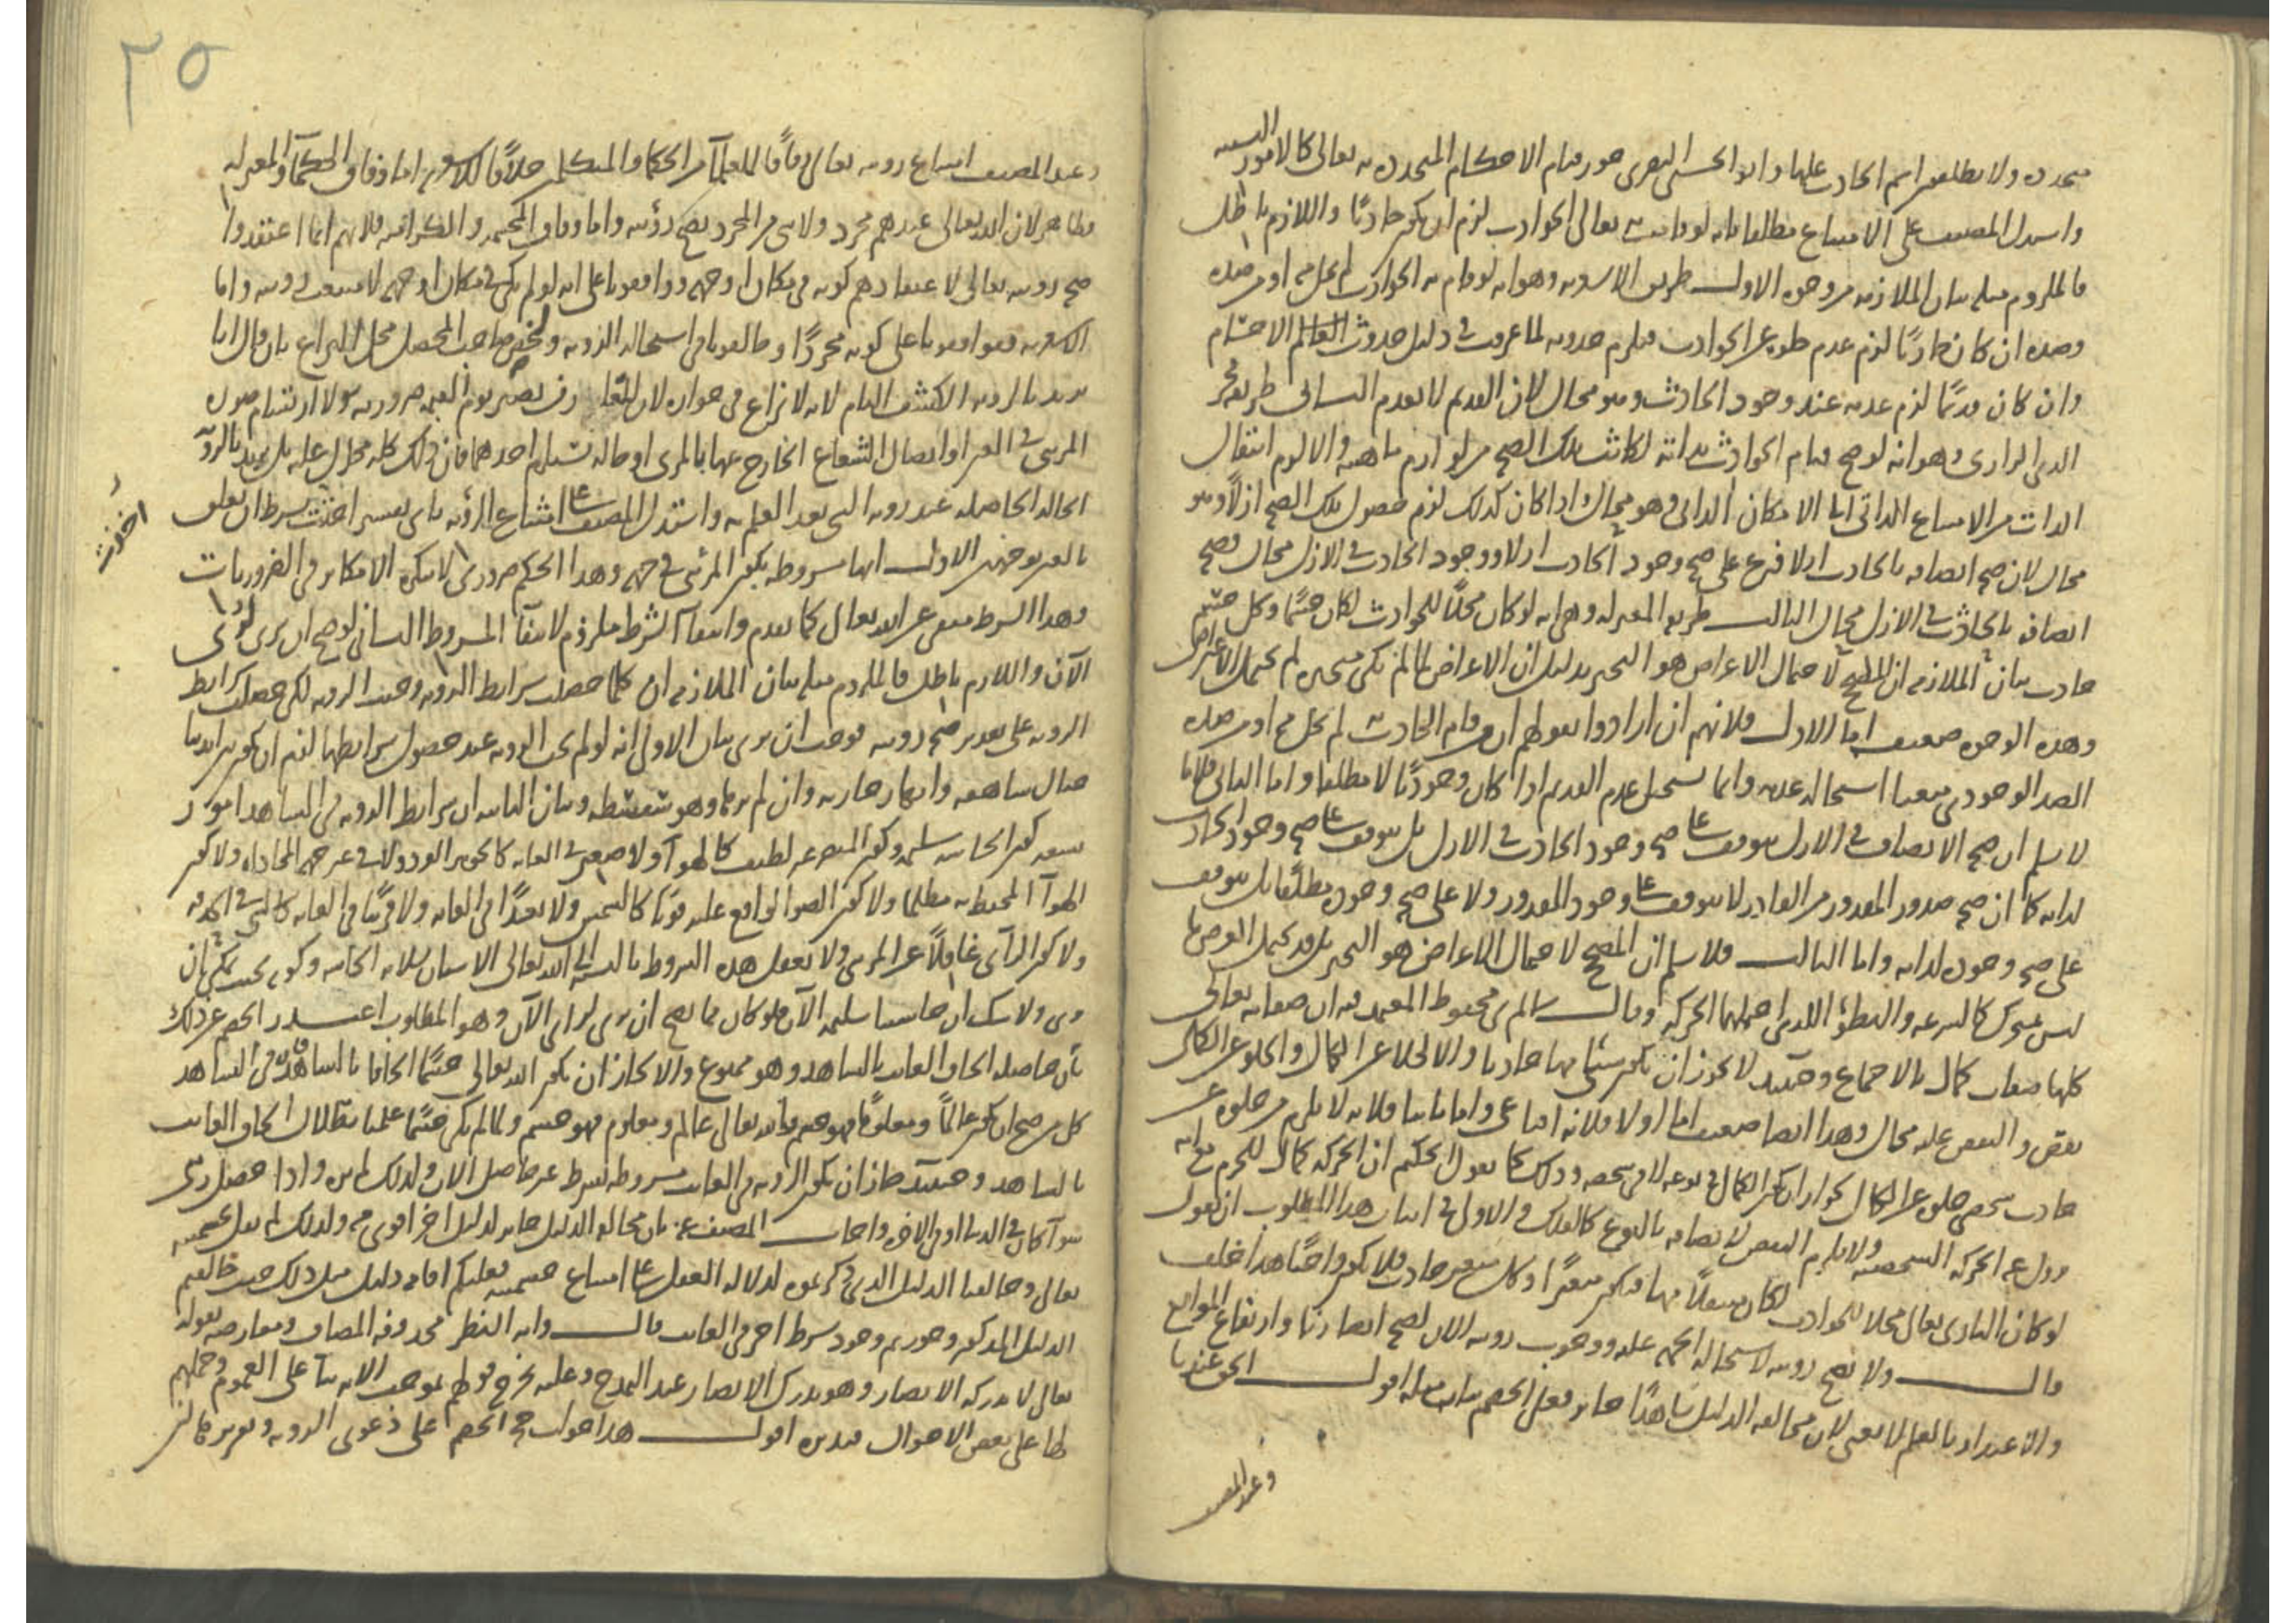 متجددة ولا يطلقون اسم الحادث عليها وابو الحسين البصرى جوز قيام الاحكام المتجددة به تعالى كالامور النسبية
واستدل المصنف على الامتناع مطلقا بانه لو قامت به تعالى الحوادث لزم ان يكون حادثًا واللازم باطل
فالملزوم مثله بيان الملازمة من وجوه الاول طريق الاشعرية وهو انه لو قام به الحوادث لم يخل منه او من ضده
وضده ان كان حادثًا لزم عدم خلوه عن الحوادث فيلزم حدوثه لما عرفت فى دليل حدوث الاجسام
وان كان قديمًا لزم عدمه عند وجود الحادث وهو محال لان القديم لا يعدم الثانى طريقة فخر
الدين الرازى وهو انه لو صح قيام الحوادث بذاته لكانت تلك الصحة من لوازم ماهيته والا لزم انتقال
الذات من الامتناع الذاتى الى الامكان الذاتى وهو محال واذا كان كذلك لزم حصول تلك الصحة ازلًا وهو
محال لان صحة اتصافه بالحادث ازلا فرع على صحة وجود الحادث ازلا ووجود الحادث فى الازل محال فصحة
اتصافه بالحادث فى الازل محال الثالث طريقة المعتزلة وهى انه لو كان محلًا للحوادث لكان جسمًا وكل جسم
حادث بيان الملازمة ان المصحح لاحتمال الاعراض هو التحيز بدليل ان الاعراض لما لم تكن متحيزة لم تحتمل الاعراض
وهذه الوجوه ضعيفة اما الاول فلانهم ان ارادوا بقولهم ان من قام به الحادث لم يخل منه او من ضده
الضد الوجودى منعنا استحالة عدمه وانما يستحيل عدم القديم اذا كان وجوديًا لا مطلقا واما الثانى فلانا
لا نسلم ان صحة الاتصاف فى الازل يتوقف على صحة وجود الحادث فى الازل بل يتوقف على صحة وجود الحادث
لذاته كما ان صحة صدور المقدور من القادر لا يتوقف على وجود المقدور ولا على صحة وجوده مطلقًا بل يتوقف
على صحة وجوده لذاته واما الثالث فلا نسلم ان المصحح لاحتمال الاعراض هو التحيز بل قد يحتمل العرض ما
ليس بمتحيز كالسرعة والبطؤ اللذين احتملهما الحركة وقال المعتمد فيه ان صفاته تعالى
كلها صفات كمال بالاجماع وحينئذ لا يجوز ان يكون شئ منها حادثا والا لخلا عن الكمال والخلو عن الكمال
نقص والنقص عليه محال وهذا ايضا ضعيف اما اولا فلانه اقناعى واما ثانيا فلانه لا يلزم من خلوه عن
حادث شخصى خلوه عن الكمال لجواز ان يكون الكمال فى نوعه لا فى شخصه وذلك كما يقول الحكيم ان الحركة كمال للجرم مع انه
يزول عنه الحركة الشخصية ولا يلزم النقص لاتصافه بالنوع كالفلك والاولى فى اثبات هذا المطلوب ان نقول
لو كان البارى تعالى محلا للحوادث لكان منفعلًا عنها فيكون متغيرًا وكل متغير حادث فلا يكون واجبًا هذا خلف
قال ولا تصح رويته لاستحالة الجهة عليه ووجوب رويته الان لصحة ابصارنا وارتفاع الموانع
والاعتذار بالعلم لا يغنى لان مخالفة الدليل شاهدًا جائز فعلى الخصم بيان مثله اقول الحق عندنا
وعند المصنف
٢٥
وعند المصنف امتناع رويته تعالى وفاقا للمعتزلة من الحكما والمتكلمين خلافًا للاشعرية اما وفاق الحكمآ والمعتزلة
فظاهر لان الله تعالى عندهم مجرد ولا شى من المجرد يصح رؤيته واما وفاق المجسمة والكرامية فلانهم انما اعتقدوا
صحة رويته تعالى لاعتقادهم كونه فى مكان او جهة ووافقونا على انه لو لم يكن فى مكان او جهة لامتنعت رويته واما
الاشعرية فوافقونا على كونه مجردًا وخالفونا فى استحالة الروية ولخص صاحب المحصل محل النزاع بان قال انا لا
نريد بالروية الكشف التام لانه لا نزاع فى جوازه لان المعارف تصير يوم القيمة ضرورية ولا ارتسام صورة
المرئى فى العين او اتصال الشعاع الخارج عنها بالمرئى او حالة تستلزم احدهما فان ذلك كله محال عليه بل نريد بالروية
الحالة الحاصلة عند روية الشى بعد العلم به واستدل المصنف على امتناع الرؤية باى تفسير اخذت بشرط ان يتعلق
اخذت
بالعين بوجهين الاول انها مشروطة بكون المرئى فى جهة وهذا الحكم ضرورى لا ينكره الا مكابر فى الضروريات
وهذا الشرط منتفى عن الله تعالى كما تقدم وانتفآ الشرط ملزوم لانتفآ المشروط الثانى لو صح ان يرى لرُوى
الآن واللازم باطل فالملزوم مثله بيان الملازمة ان كلما حصلت شرايط الروية وجبت الروية لكن حصلت شرايط
الروية على تقدير صحة رويته فوجب ان يرى بيان الاولى انه لو لم تجب الروية عند حصول شرايطها لزم ان يكون بين ايدينا
جبال شاهقة وانهار جارية وان لم نرها وهو سفسطة وبيان الثانية ان شرايط الروية فى الشاهد امور
تسعة كون الحاسة سليمة وكون المبصر غير لطيف كالهوآ ولا صغير فى الغاية كالجوهر الفرد ولا فى غير جهة المحاذاة ولا كون
الهوآ المحيط به مظلما ولا كون الضوا الواقع عليه قويًا كالشمس ولا بعيدًا فى الغاية ولا قريبًا فى الغاية كالشى فى الحدقة
ولا كون الرآئى غافلًا عن المرئى ولا تعقل هذه الشروط بالنسبة الى الله تعالى الا شيئان سلامة الحاسة وكونه بحيث يمكن ان
يرى ولا شك ان حاستنا سليمة الآن فلو كان مما يصح ان يرى لرأى الآن وهو المطلوب اعتذر الخصم عن ذلك
بان حاصله الحاق الغايب بالشاهد وهو ممنوع والا لجاز ان يكون الله تعالى جسمًا الحاقا بالشاهد فان فى الشاهد
كل من صح ان يكون عالمًا ومعلومًا فهو جسم والله تعالى عالم ومعلوم فهو جسم ولما لم يكن جسمًا علمنا بطلان الحاق الغايب
بالشاهد وحينئذ جاز ان يكون الروية فى الغايب مشروطة بشرط غير حاصل الان ولذلك لم نره واذا حصل روى
سوآ كان فى الدنيا او فى الاخرة واجاب المصنف عنه بان مخالفة الدليل جائز لدليل اخر اقوى منه ولذلك لم نقل بجسميته
تعالى وخالفنا الدليل الذى ذكرتموه لدلالة العقل على امتناع جسميته فعليكم اقامة دليل مثل ذلك حيث خالفتم
الدليل المذكور وجوزتم وجود شرط اخر فى الغايب قال واية النظر محذوفة المضاف ومعارضة بقوله
تعالى لا تدركه الابصار وهو يدرك الابصار عند المدح وعليه يخرج قولهم بموجب الاية بنآ على العموم وحملهم
لها على بعض الاحوال فتدبره اقول هذا جواب حجة الخصم على دعوى الروية وتقريره قالت